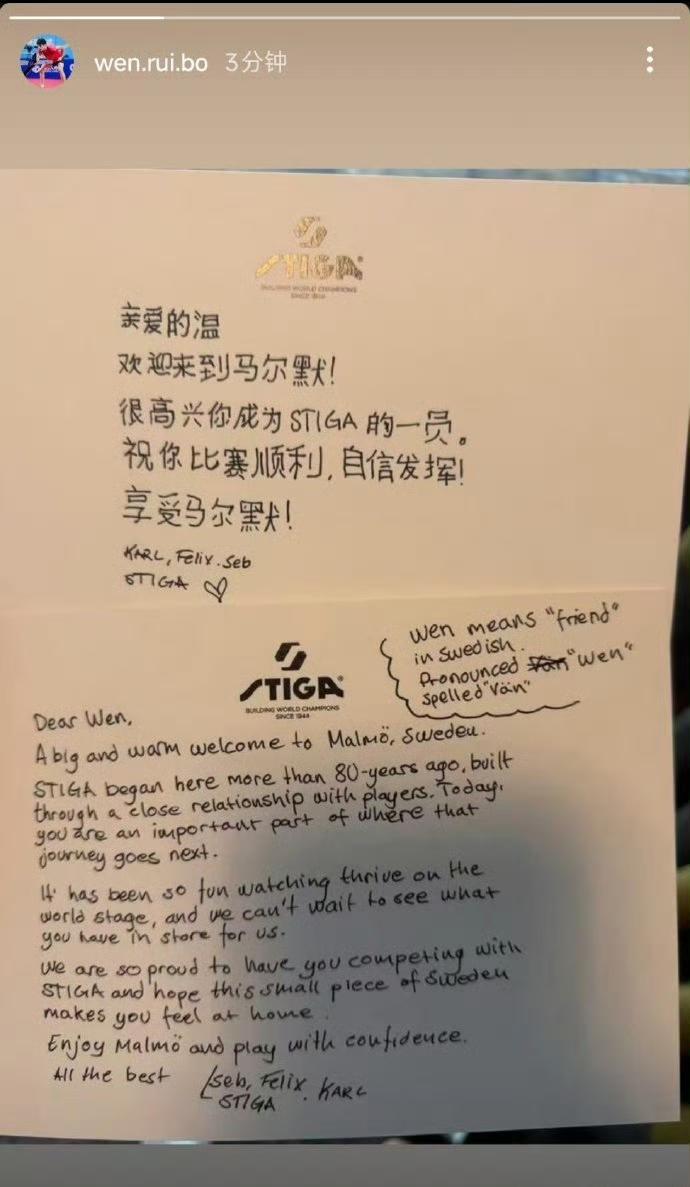 wen.rui.bo 3分钟
STIGA
BUILDING WORLD CHAMPIONS
SINCE 1944
亲爱的温
欢迎来到马尔默!
很高兴你成为STIGA的一员。
祝你比赛顺利,自信发挥!
享受马尔默!
KARL, Felix. Seb
STIGA
STIGA
BUILDING WORLD CHAMPIONS
SINCE 1944
Wen means "friend"
in Swedish.
Pronounced Vän "Wen"
spelled "Vän"
Dear Wen,
A big and warm welcome to Malmö, Sweden.
STIGA began here more than 80-years ago, built
through a close relationship with players. Today,
you are an important part of where that
journey goes next.
It has been so fun watching thrive on the
world stage, and we can't wait to see what
you have in store for us.
We are so proud to have you competing with
STIGA and hope this small piece of Sweden
makes you feel at home.
Enjoy Malmö and play with confidence.
All the best
Seb, Felix. KARL
STIGA